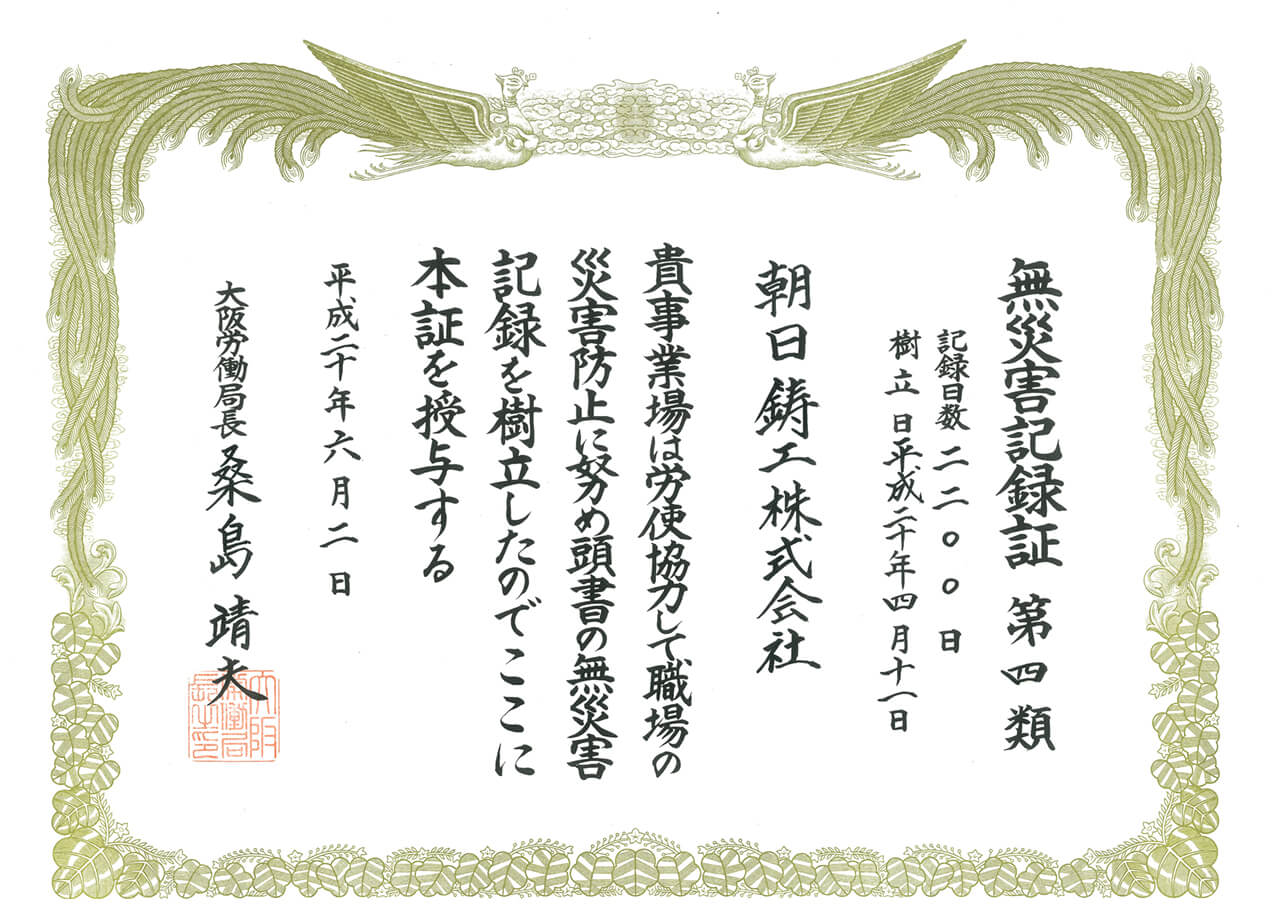 無災害記録証 第四類
記録日数 二二〇〇日
樹立日平成二十年四月十一日
朝日鋳工株式会社
貴事業場は労使協力して職場の
災害防止に努め頭書の無災害
記録を樹立したのでここに
本証を授与する
平成二十年六月二日
大阪労働局長 桑島靖夫
大阪
労働局
長之印